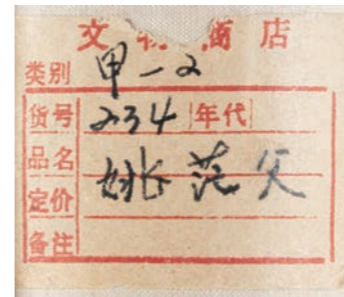 文物商店
类别 甲-2
货号 234 年代
品名 姚范父
定价
备注